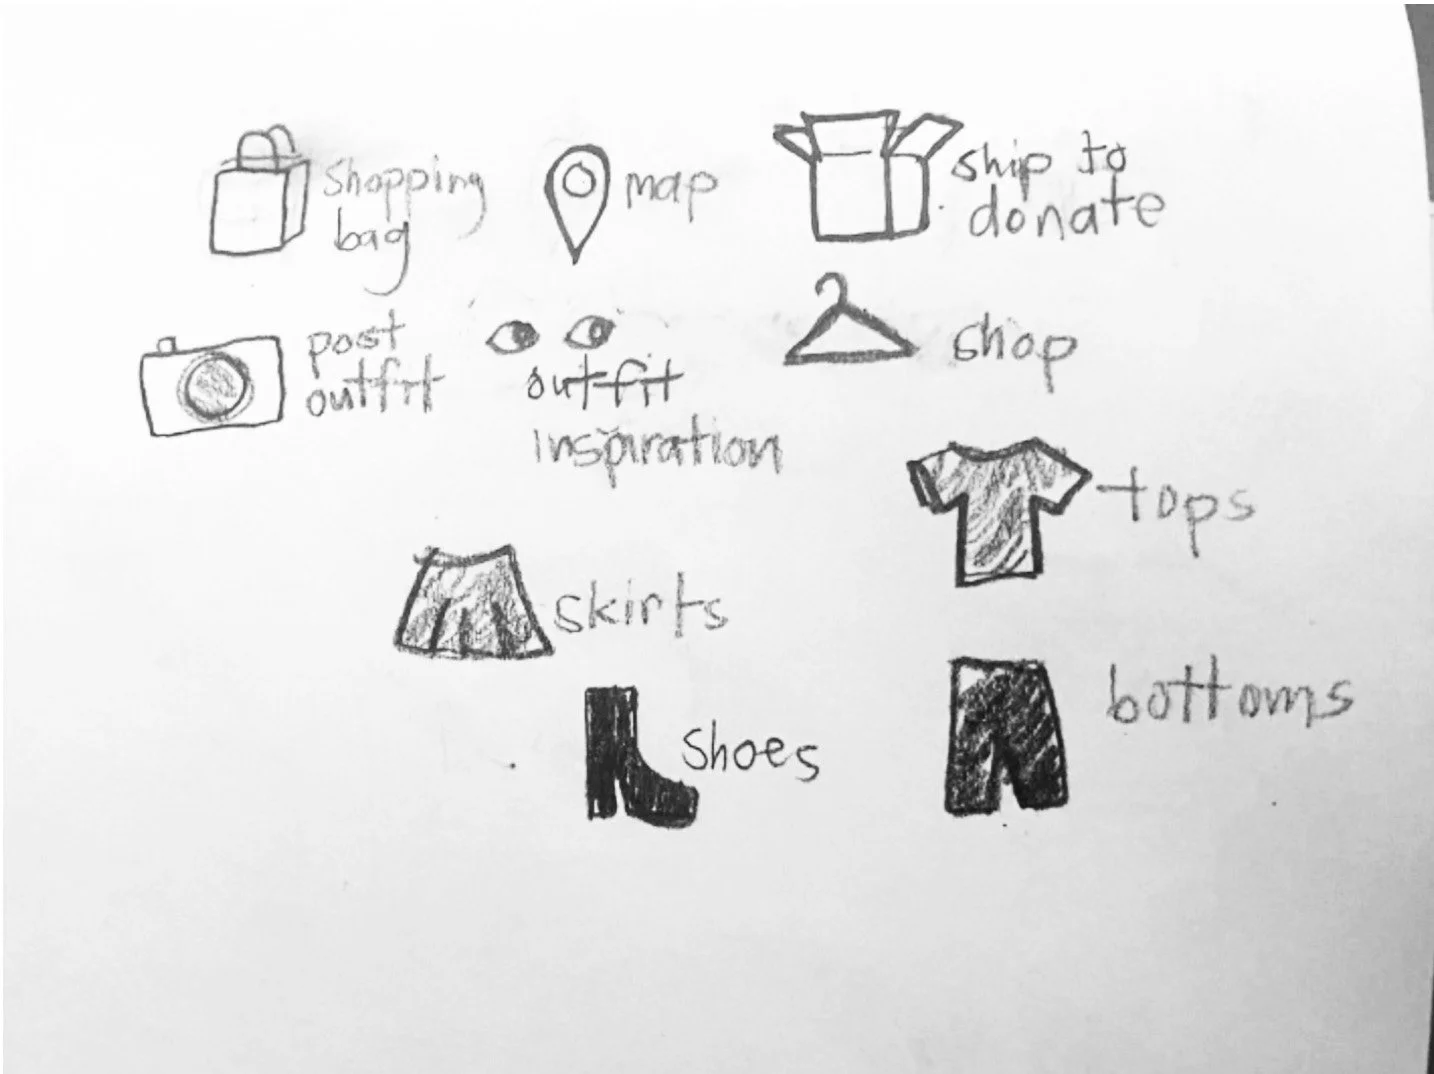 shopping
bag
map
ship to
donate
post
outfit
outfit
inspiration
shop
tops
skirts
bottoms
shoes